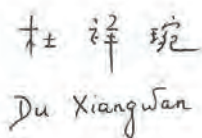 杜 祥 琬
Du Xiangwan